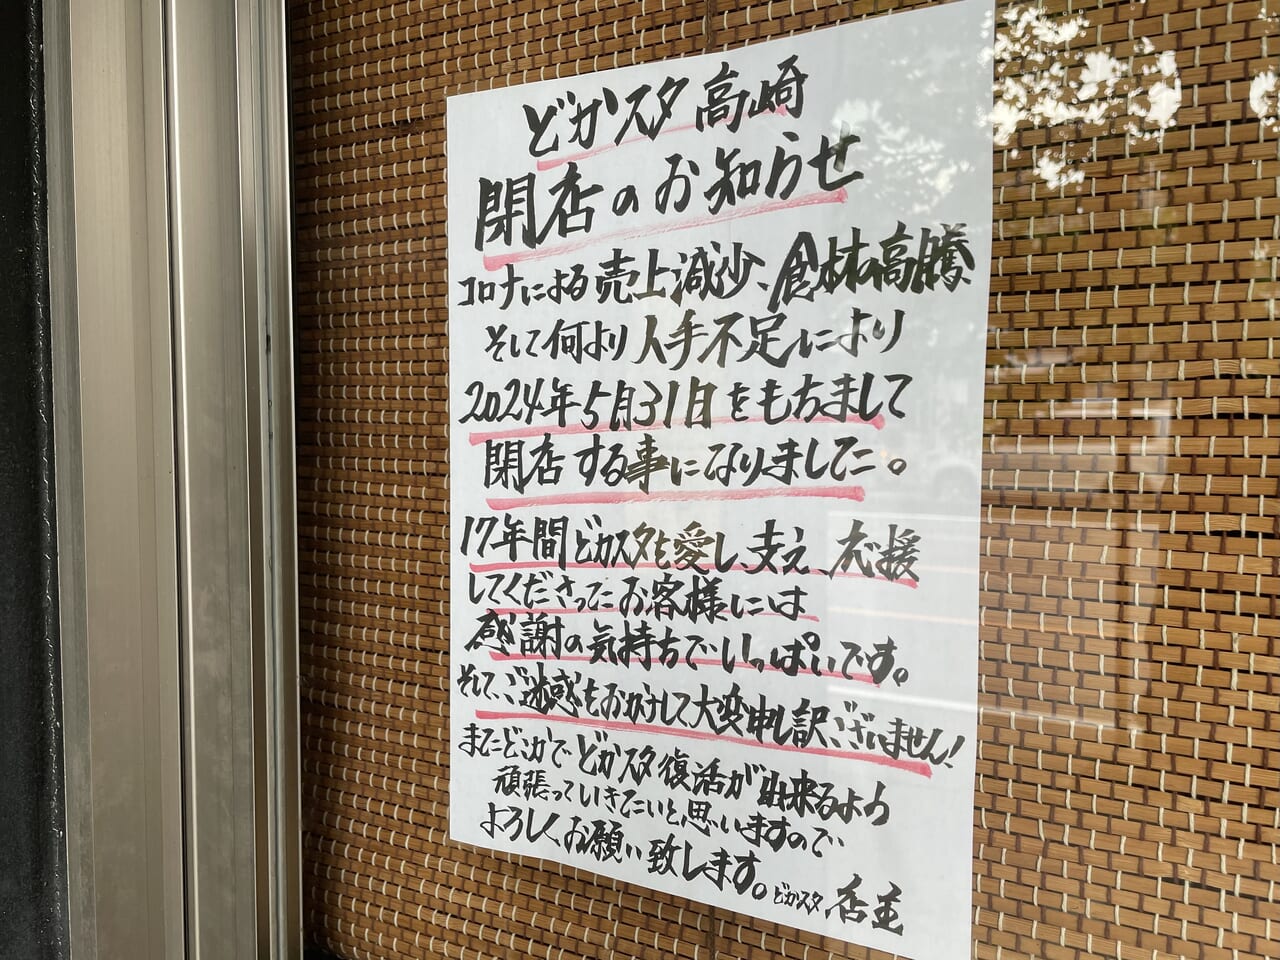 どかスタ高崎
閉店のお知らせ
コロナによる売上減少、食材の高騰
そして何より人手不足により
2024年5月31日をもちまして
閉店する事になりました。
17年間どかスタを愛し、支え、応援
してくださったお客様には
感謝の気持ちでいっぱいです。
そして、ご迷惑をおかけして大変申し訳ございません!
またどこかでどかスタ復活が出来るよう
頑張っていきたいと思いますので
よろしくお願い致します。どかスタ店主